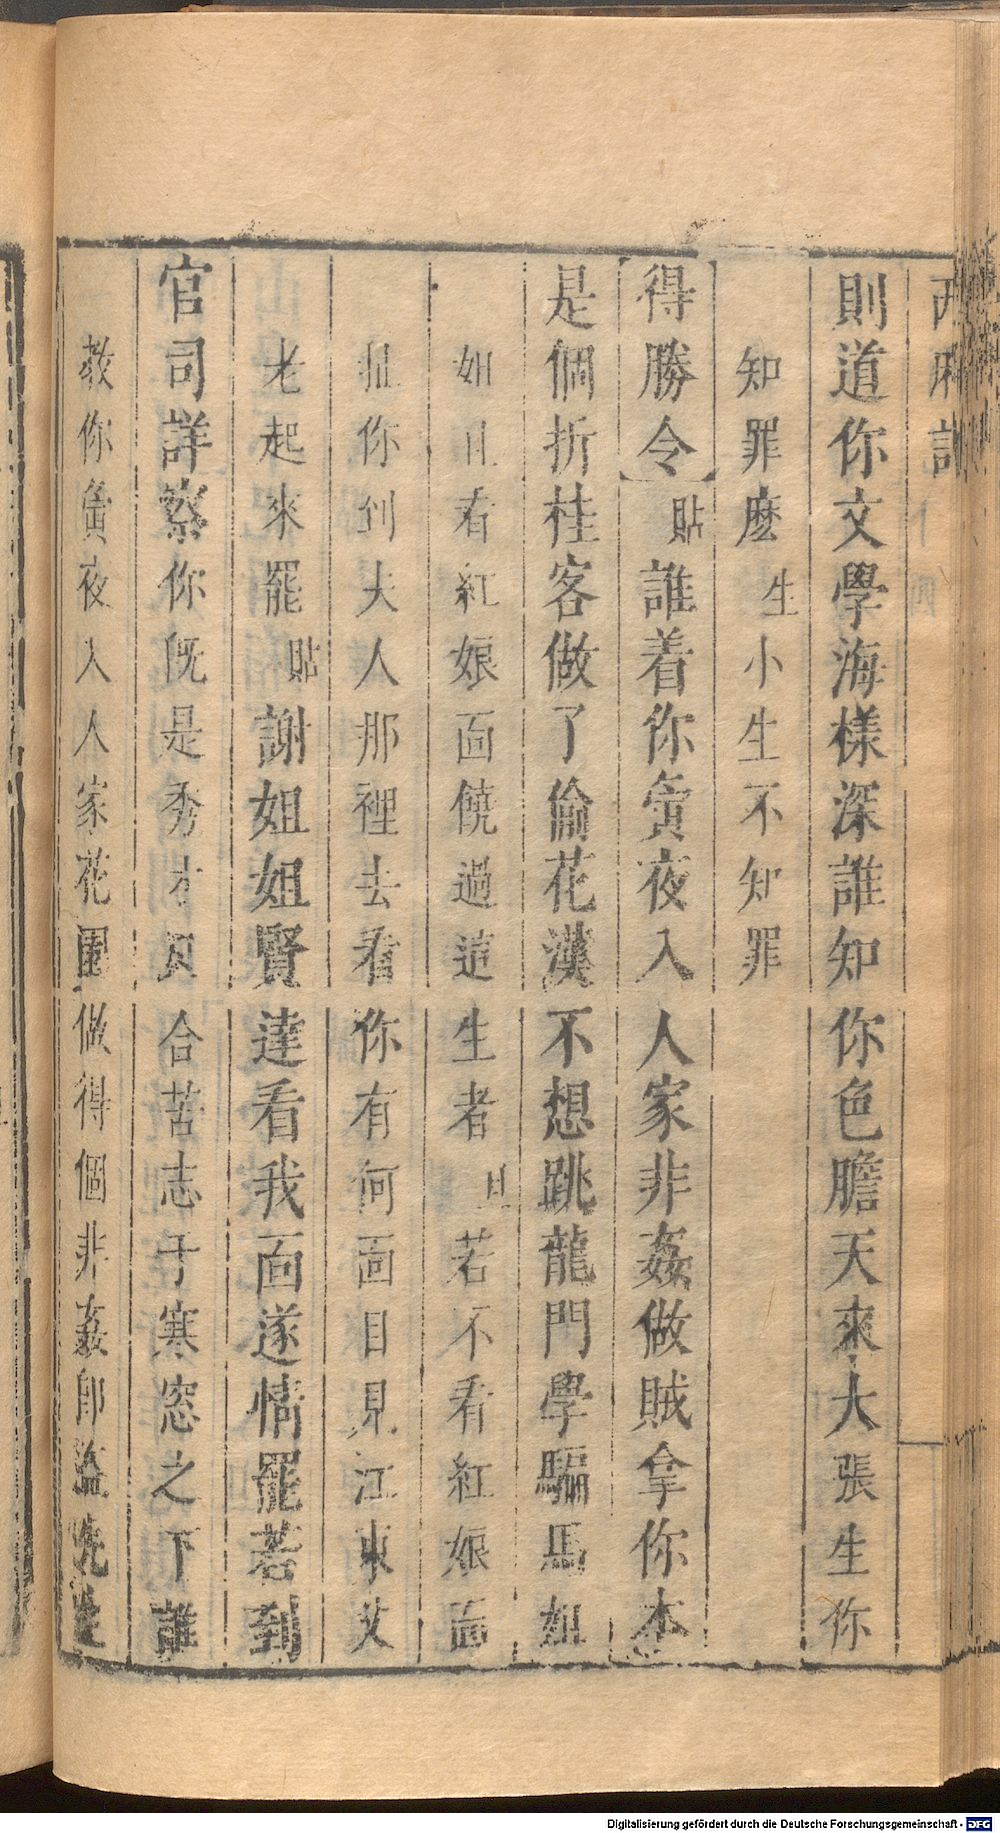 西廂記
則道你文學海樣深誰知你色膽天來大張生你
知罪麽生小生不知罪
得勝令貼誰着你夤夜入人家非姦做賊拿你本
是個折桂客做了偷花漢不想跳龍門學騙馬姐
姐且看紅娘面饒過這生者旦若不看紅娘面
扯你到夫人那裡去看你有何面目見江東父
老起來罷貼謝姐姐賢達看我面遂情罷若到
官司詳察你既是秀才只合苦志于寒窓之下誰
教你夤夜入人家花園做得個非姦即盜先生
Digitalisierung gefördert durch die Deutsche Forschungsgemeinschaft - DFG